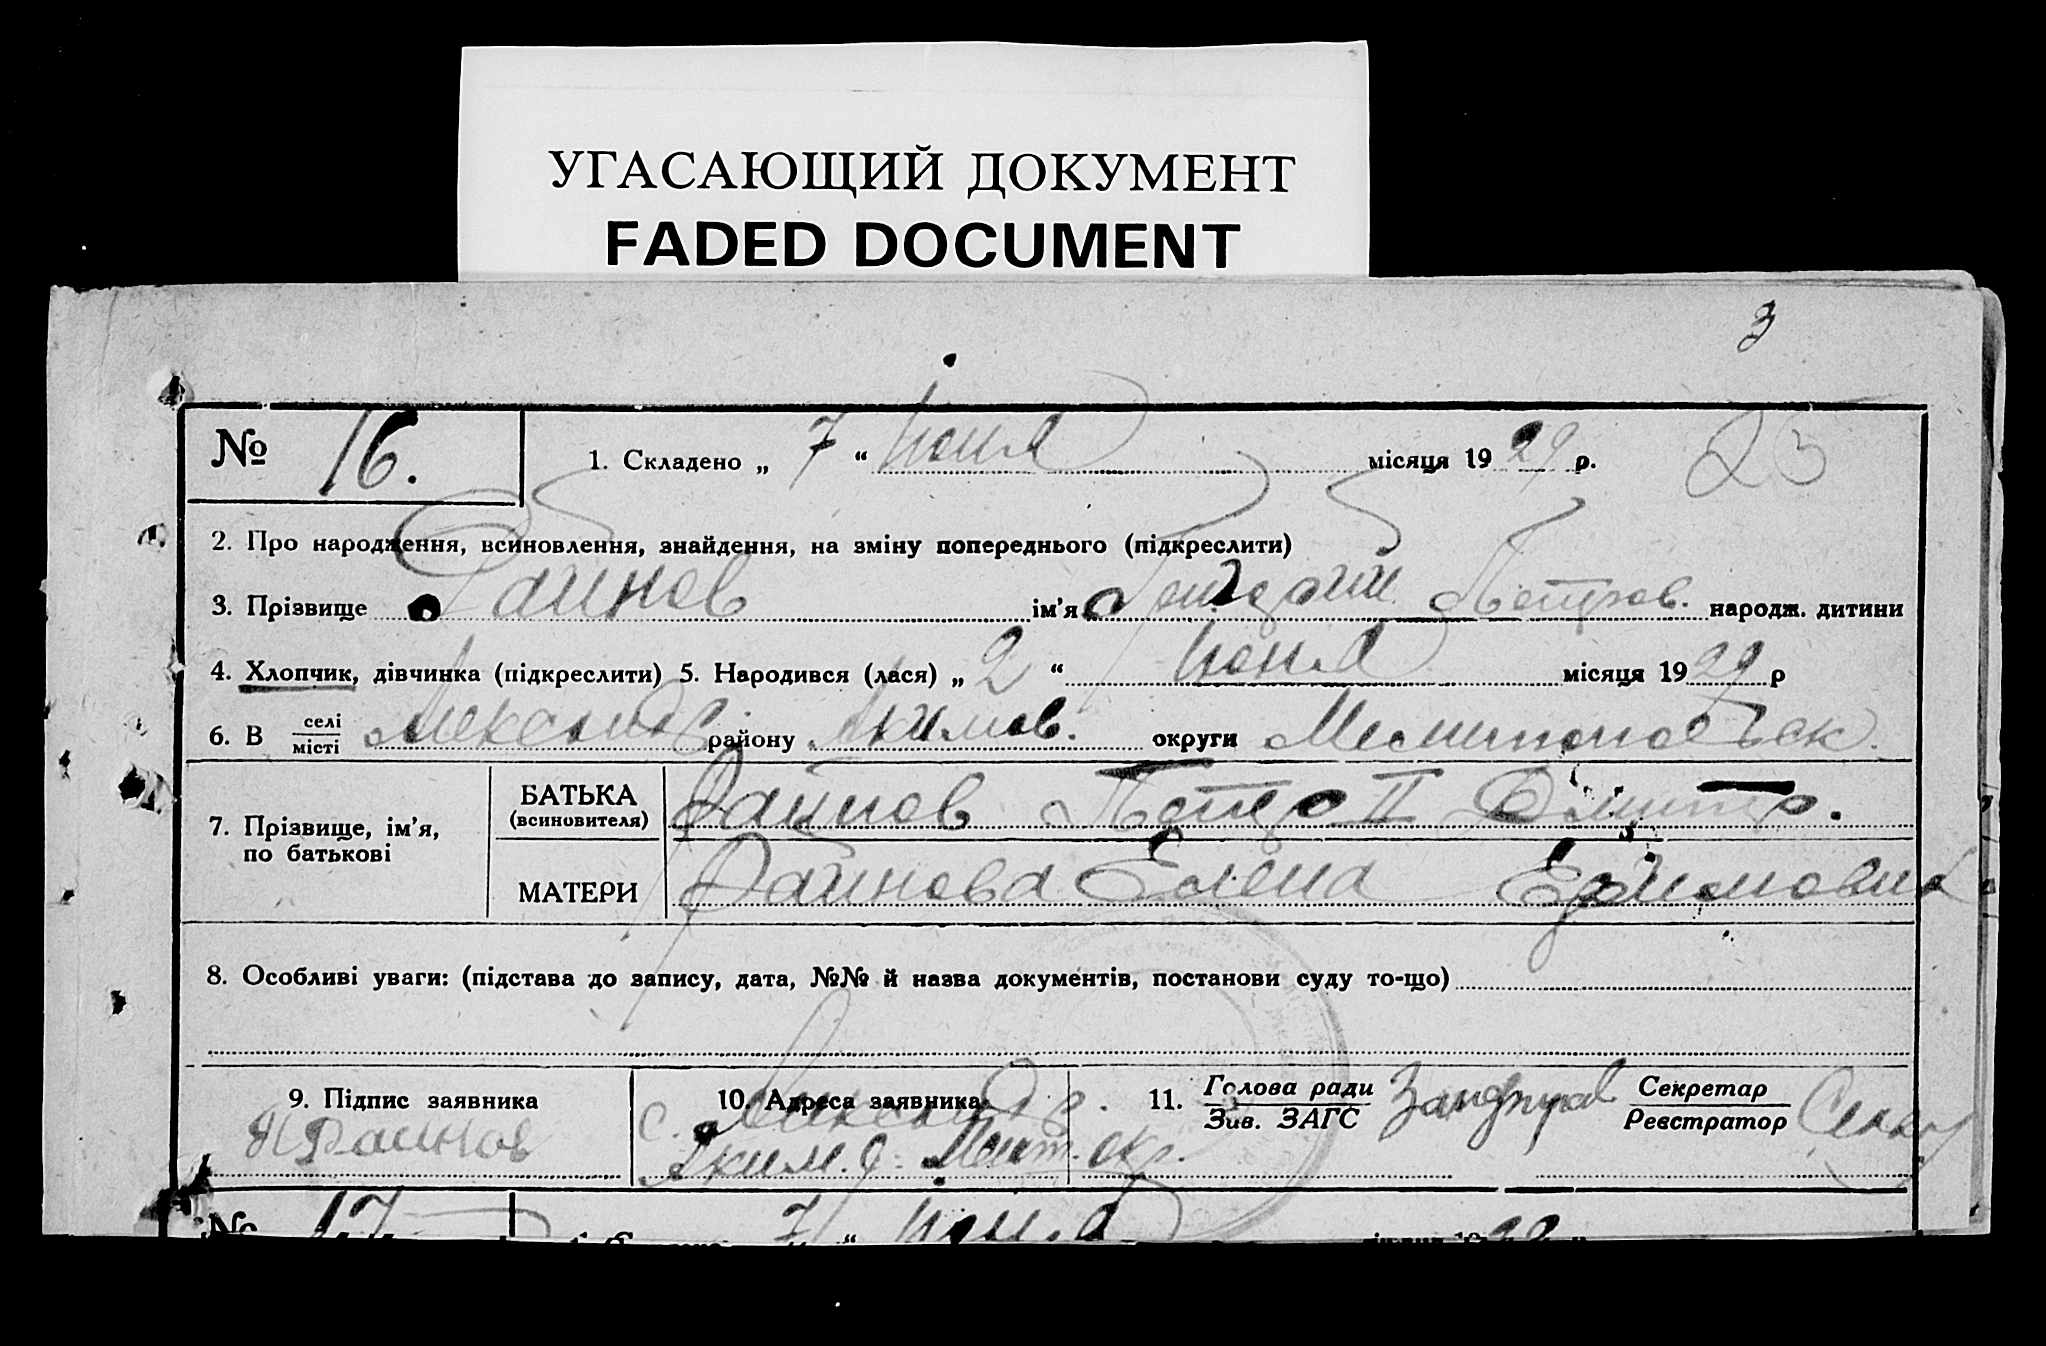 УГАСАЮЩИЙ ДОКУМЕНТ
FADED DOCUMENT
3
№ 16. 1. Складено „ 7 “ Июня місяця 19 29 р. 25
2. Про народження, всиновлення, знайдення, на зміну попереднього (підкреслити)
3. Прізвище Фаинов ім'я Петров. народж. дитини
4. Хлопчик, дівчинка (підкреслити) 5. Народився (лася) „ 2 “ Июня місяця 19 29 р
6. В селі/місті Александр району Акимов. округи Мелитопольск.
7. Прізвище, ім'я, по батькові
БАТЬКА (всиновителя) Фаинов Петро II Дмитр.
МАТЕРИ Фаинова Елена Ефимовна
8. Особливі уваги: (підстава до запису, дата, №№ й назва документів, постанови суду то-що)
9. Підпис заявника 10. Адреса заявника 11. Голова ради/Зав. ЗАГС Секретар/Реєстратор
П Фаинов с. Александр. Аким. р. Мелит. окр.
№ 17 7 “ Июня